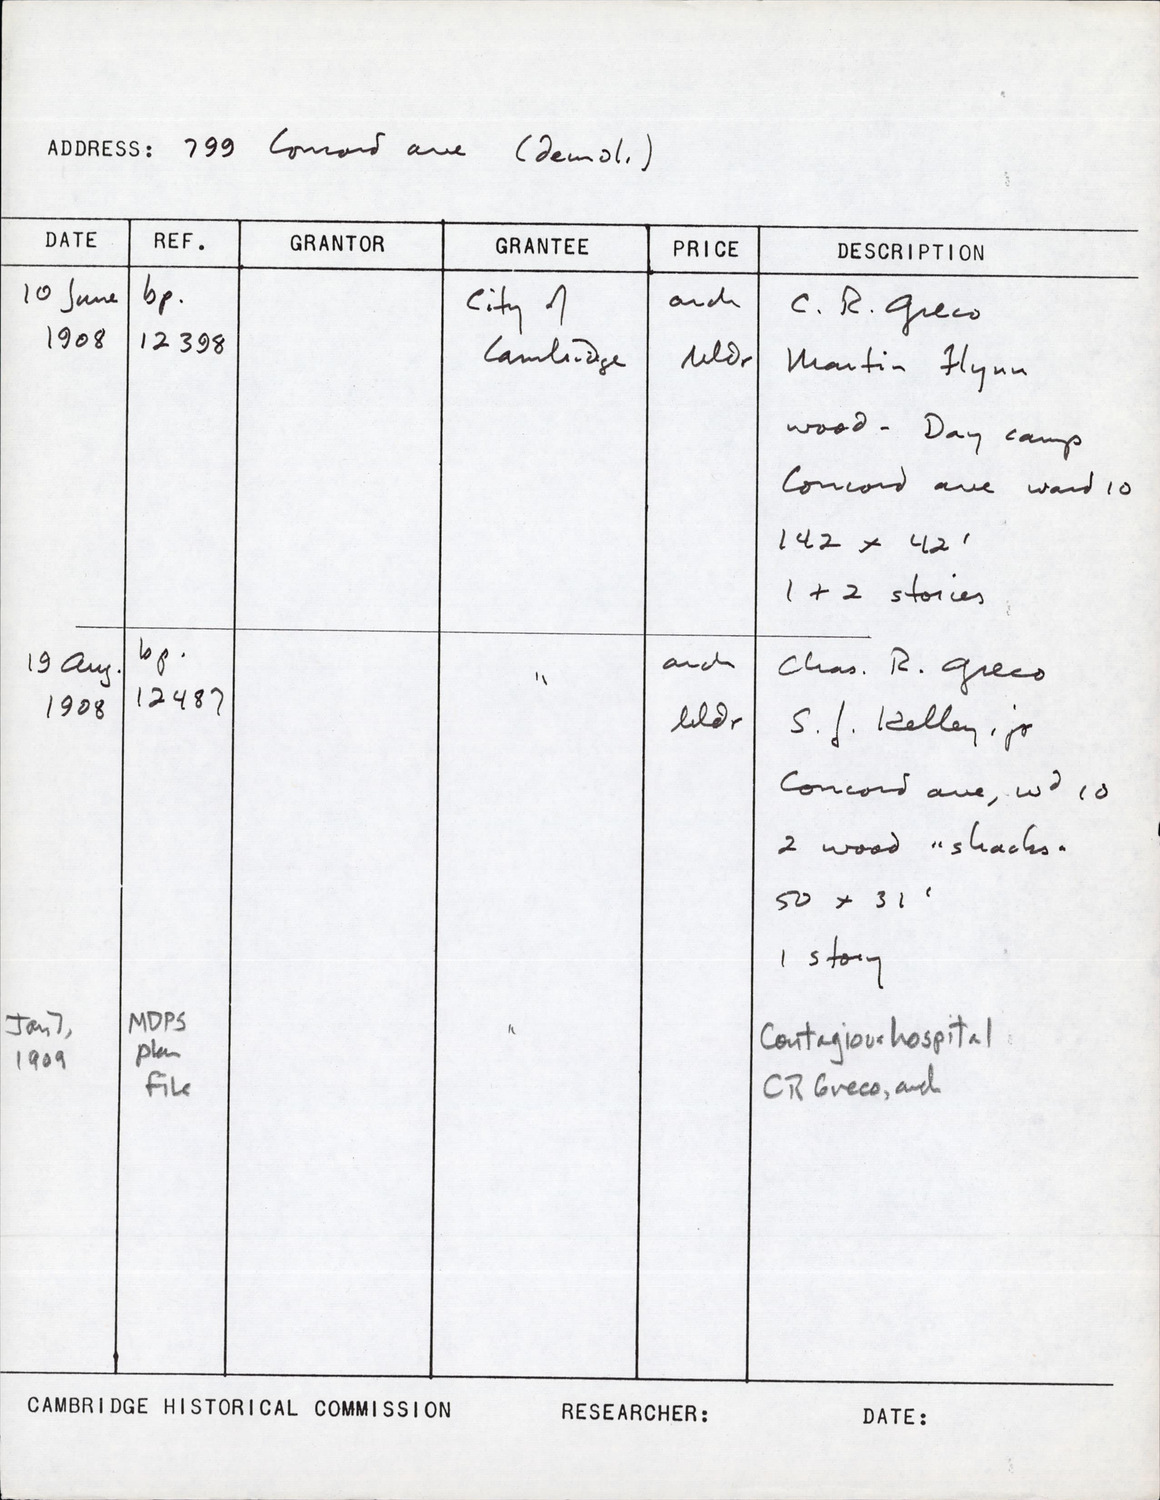 ADDRESS: 799 Concord ave (demol.)
DATE REF. GRANTOR GRANTEE PRICE DESCRIPTION
10 June bp. City of arch C. R. Greco
1908 12398 Cambridge bldr Martin Flynn
wood - Day camp
Concord ave ward 10
142 x 42'
1 + 2 stories
19 Aug. bp. " arch Chas. R. Greco
1908 12487 bldr S. J. Kelley, jr
Concord ave, wd 10
2 wood "shacks"
50 x 31'
1 story
Jan 7, MDPS " Contagious hospital
1909 plan CR Greco, arch
File
CAMBRIDGE HISTORICAL COMMISSION RESEARCHER: DATE: